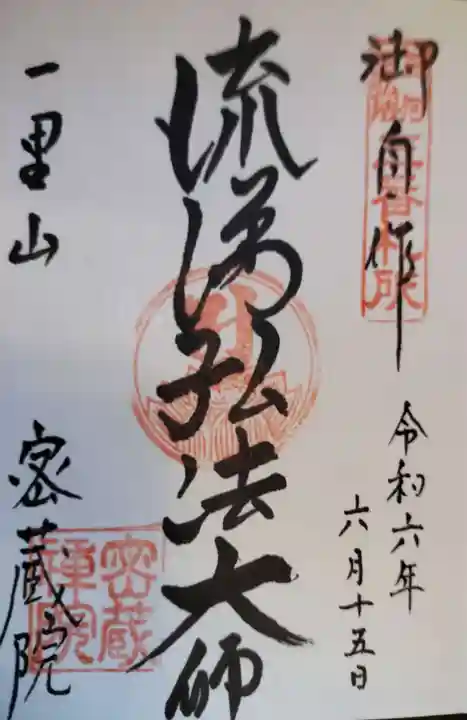 御自作
令和六年
六月十五日
流涕弘法大師
一里山
密蔵院
密蔵
禪院